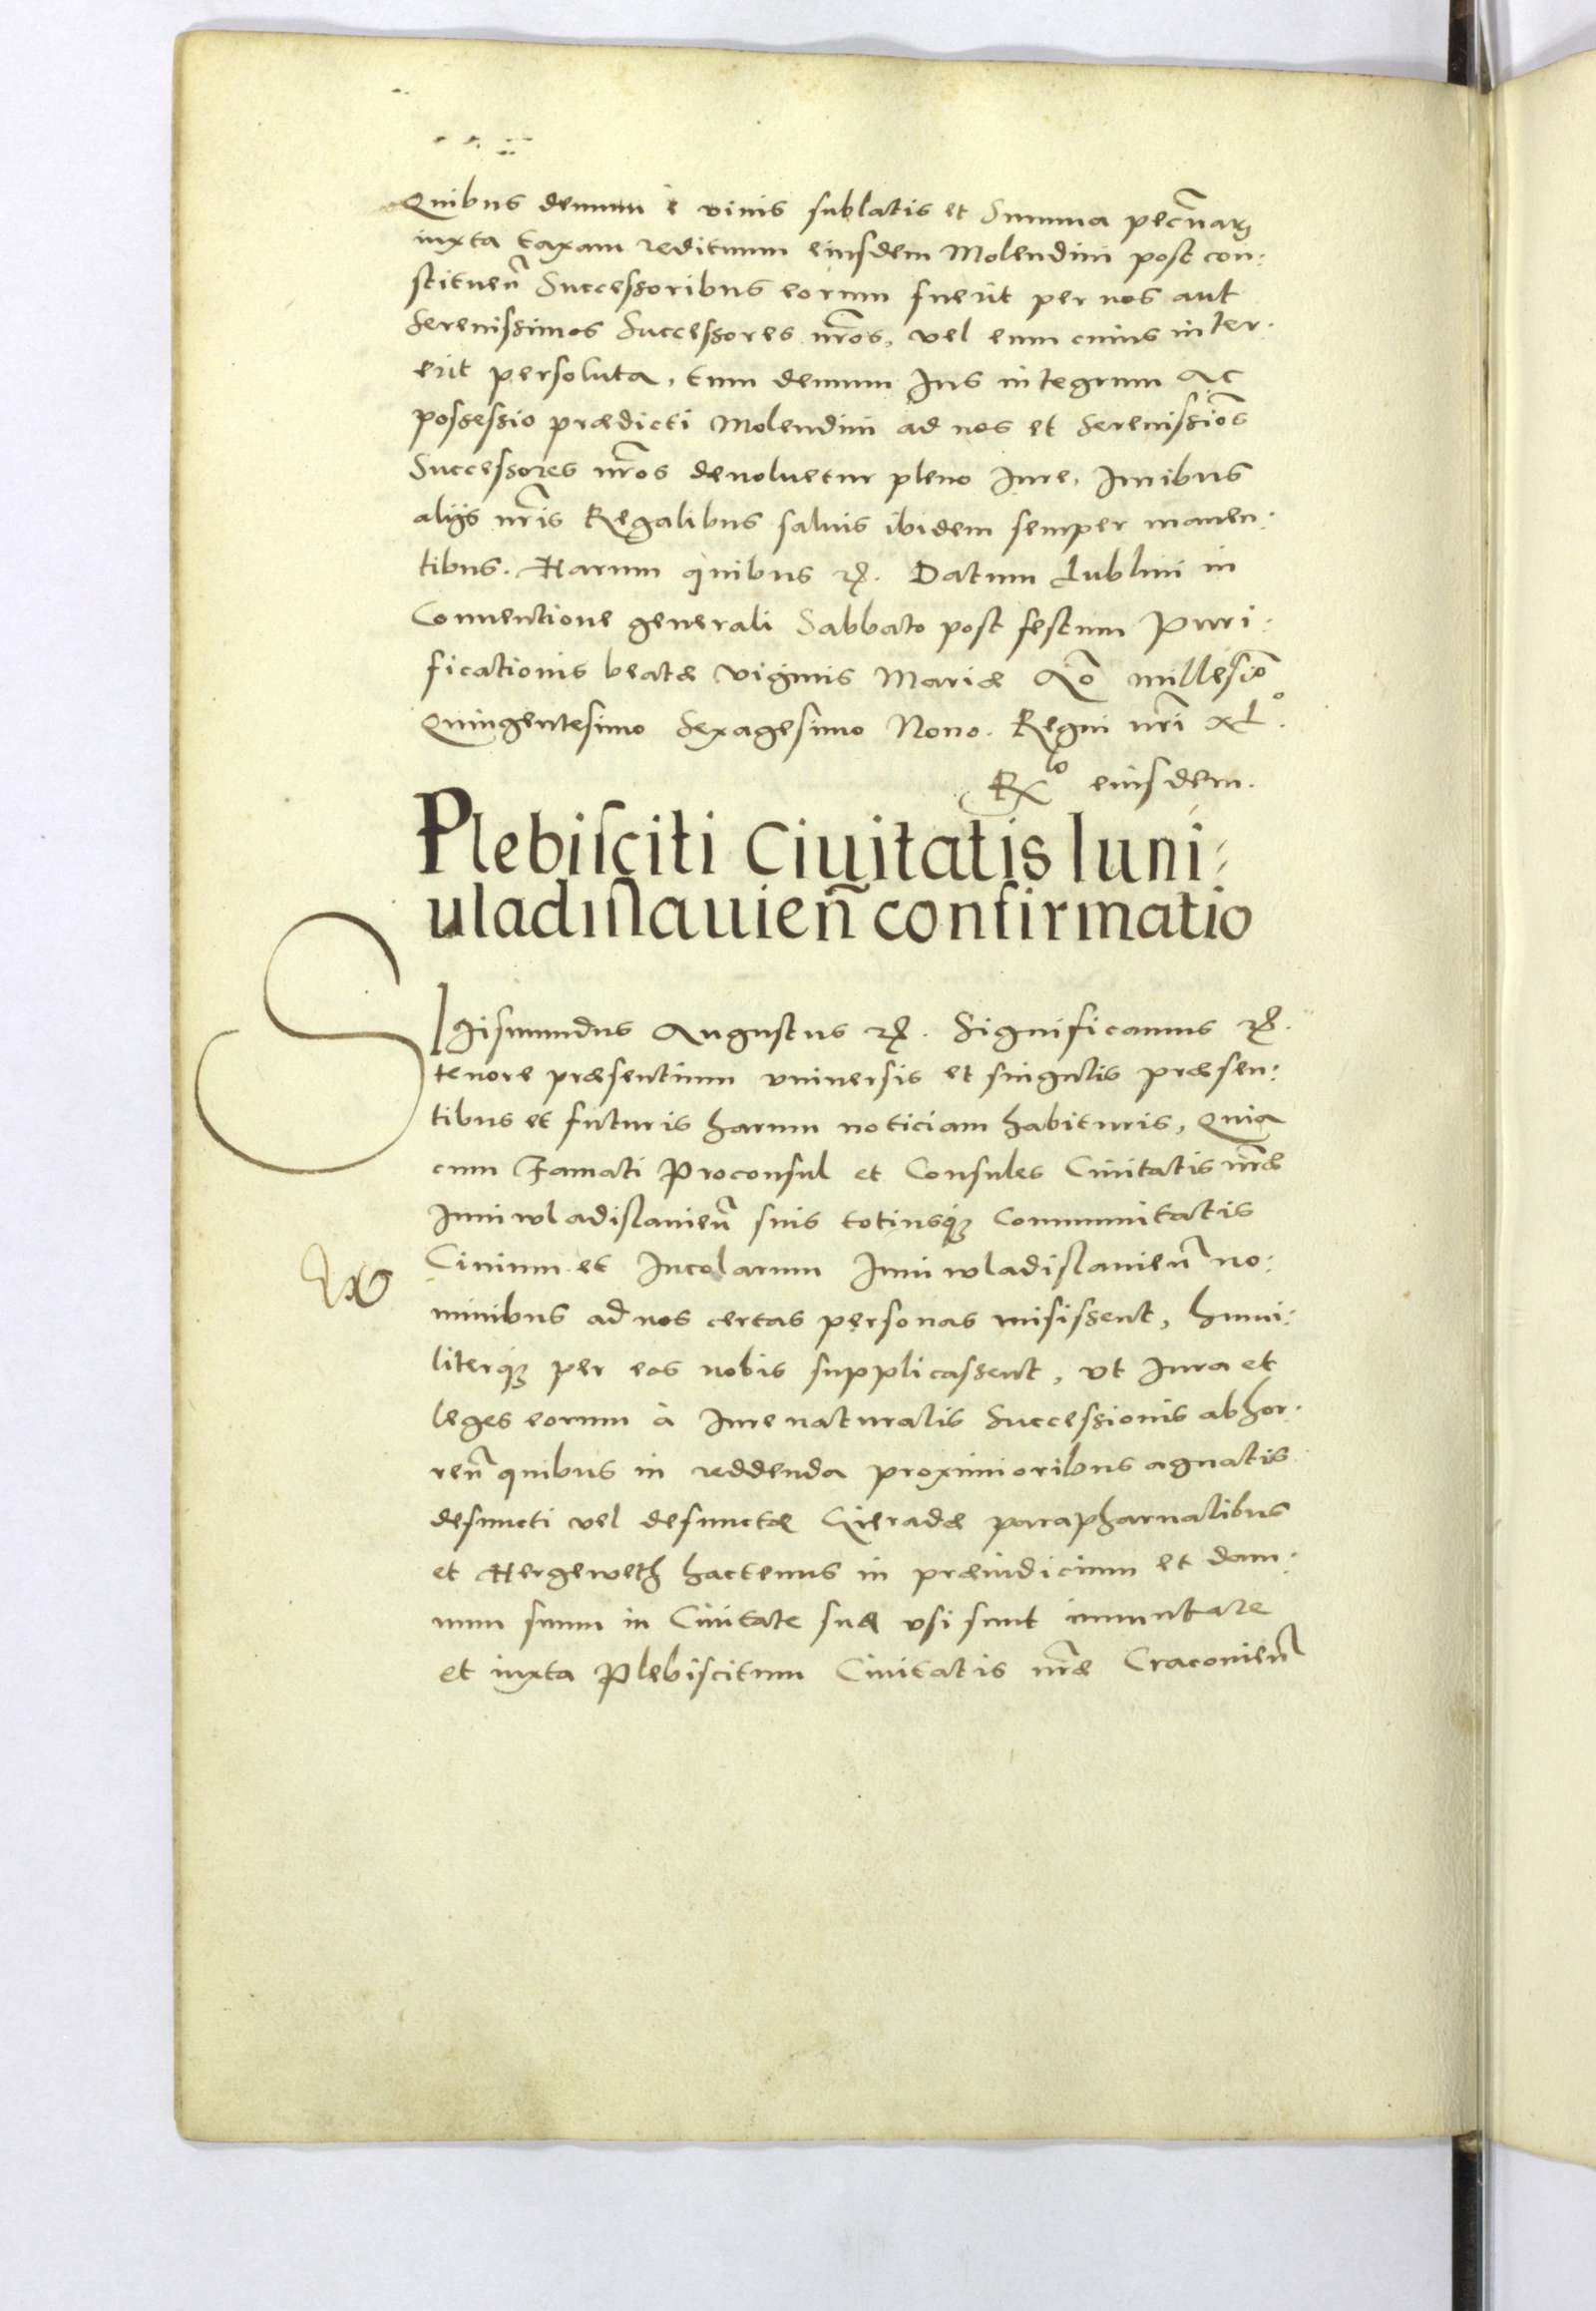 Quibus demum è viuis sublatis et Summa pecũiarꝝ
iuxta taxam redituum eiusdem Molendini post con:
stitueñ Successoribus eorum fuerit per nos aut
Serenissimos Successores nr̃os, vel eum cuius inter:
erit persoluta, tum demum Ius integrum ac
possessio prædicti Molendini ad nos et Serenissiõs
Successores nr̃os deuoluetur pleno Iure. Iuribus
alijs nr̃is Regalibus saluis ibidem semper manen:
tibus. Harum quibus ꝛc̃. Datum Lublini in
Conuentione generali Sabbato post festum Puri:
ficationis beatæ viginis Mariæ Aõ millesiõ
Quingentesimo Sexagesimo Nono. Regni nr̃i xL°.
Rx^lo eiusdem.
Plebisciti Ciuitatis Iuni:
uladislauieñ confirmatio
SIgismundus Augustus ꝛc̃. Significamus ꝛc̃.
tenore præsentium vniuersis et singulis præsen:
tibus et futuris harum noticiam habituris, Quia
cum Famati Proconsul et Consules Ciuitatis nr̃æ
Iuniwladislauieñ suis totiusq́ꝫ Communitatis
Ciuium et Incolarum Iuniwladislauieñ no:
minibus ad nos certas personas misissent, humi:
literq́ꝫ per eos nobis supplicassent, vt Iura et
leges eorum à Iure naturalis Successionis abhor:
reñ quibus in reddenda proximioribus agnatis
defuncti vel defunctæ Gieradæ parapharnalibus
et Hergeweth hactenus in præiudicium et dam:
num suum in Ciuitate sua vsi sunt immutare
et iuxta Plebiscitum Ciuitatis nr̃æ Cracouieñ